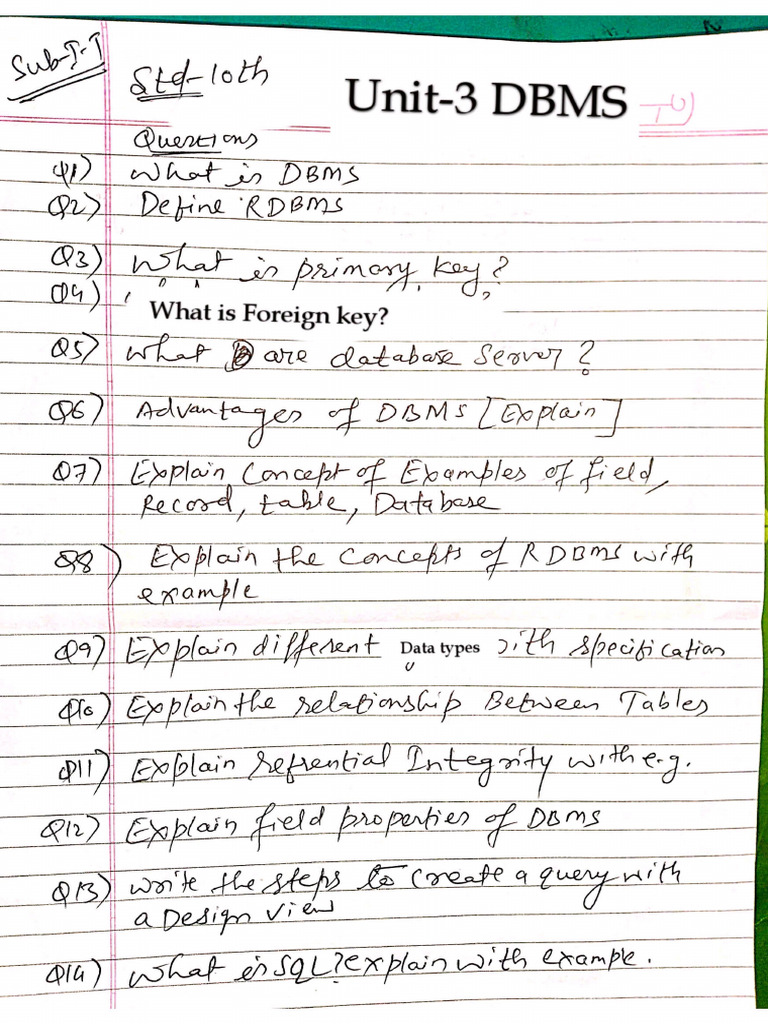 Sub-I-T
Std-10th
Unit-3 DBMS
Questions
Q1) What is DBMS
Q2) Define RDBMS
Q3) What is primary key?
Q4) What is Foreign key?
Q5) What are database Server?
Q6) Advantages of DBMS [Explain]
Q7) Explain Concept of Examples of field,
Record, table, Database
Q8) Explain the concepts of RDBMS with
example
Q9) Explain different Data types with specification
Q10) Explain the relationship Between Tables
Q11) Explain refrential Integrity with e.g.
Q12) Explain field properties of DBMS
Q13) Write the steps to create a query with
a Design view
Q14) What is SQL? explain with example.